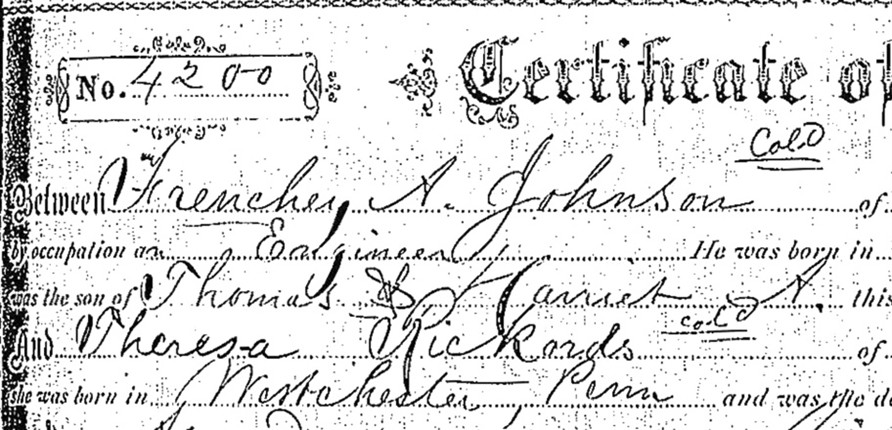 No. 4200
Certificate of
Col.D
Between Frencher A. Johnson of
by occupation an Engineer He was born in
was the son of Thomas & Harriet A. this
col'd
And Theresa Rickords of
she was born in Westchester, Penn and was the da